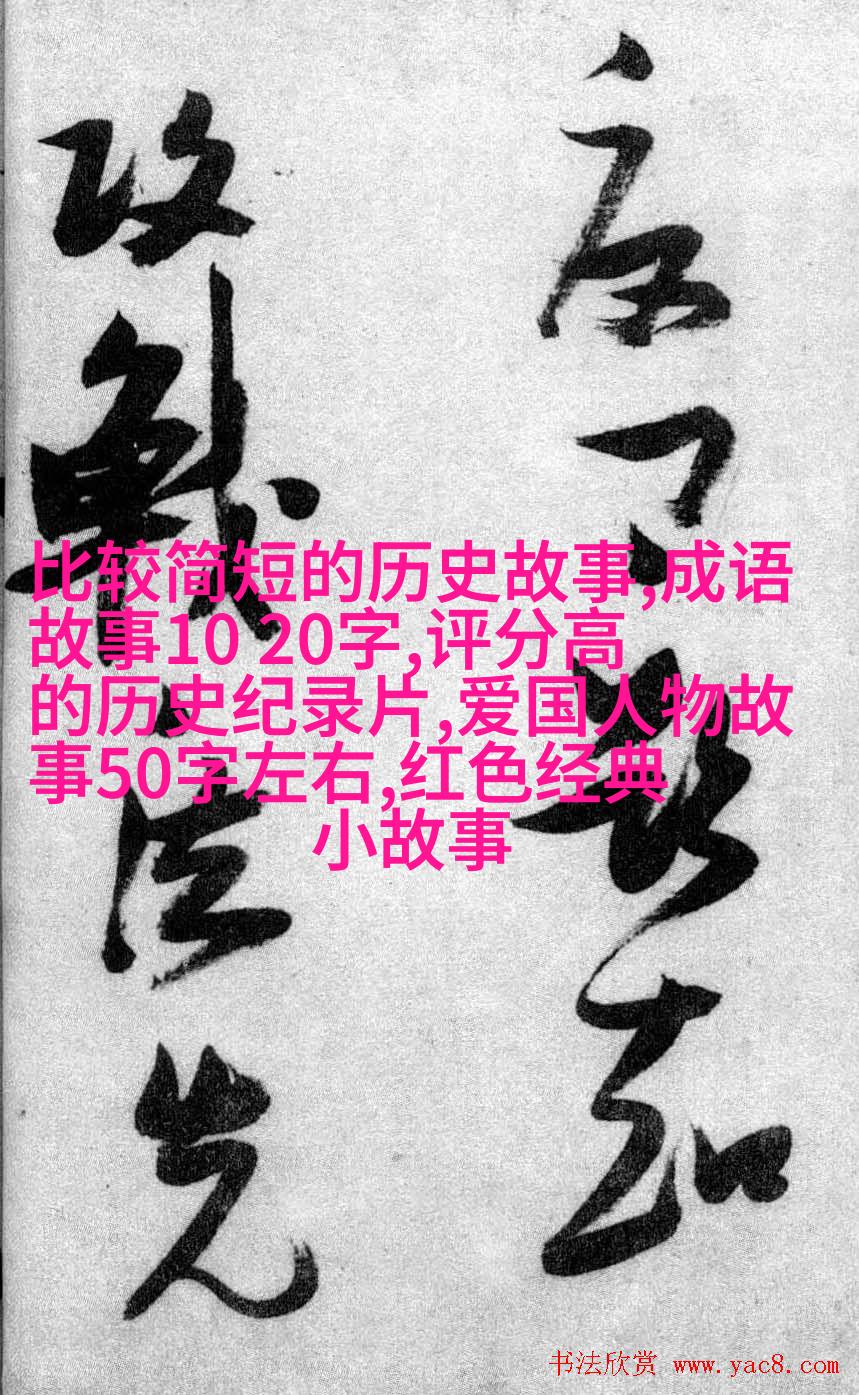 知
攻戰先
比较简短的历史故事,成语
故事10 20字,评分高
的历史纪录片,爱国人物故
事50字左右,红色经典
小故事
书法欣赏 www.yac8.com